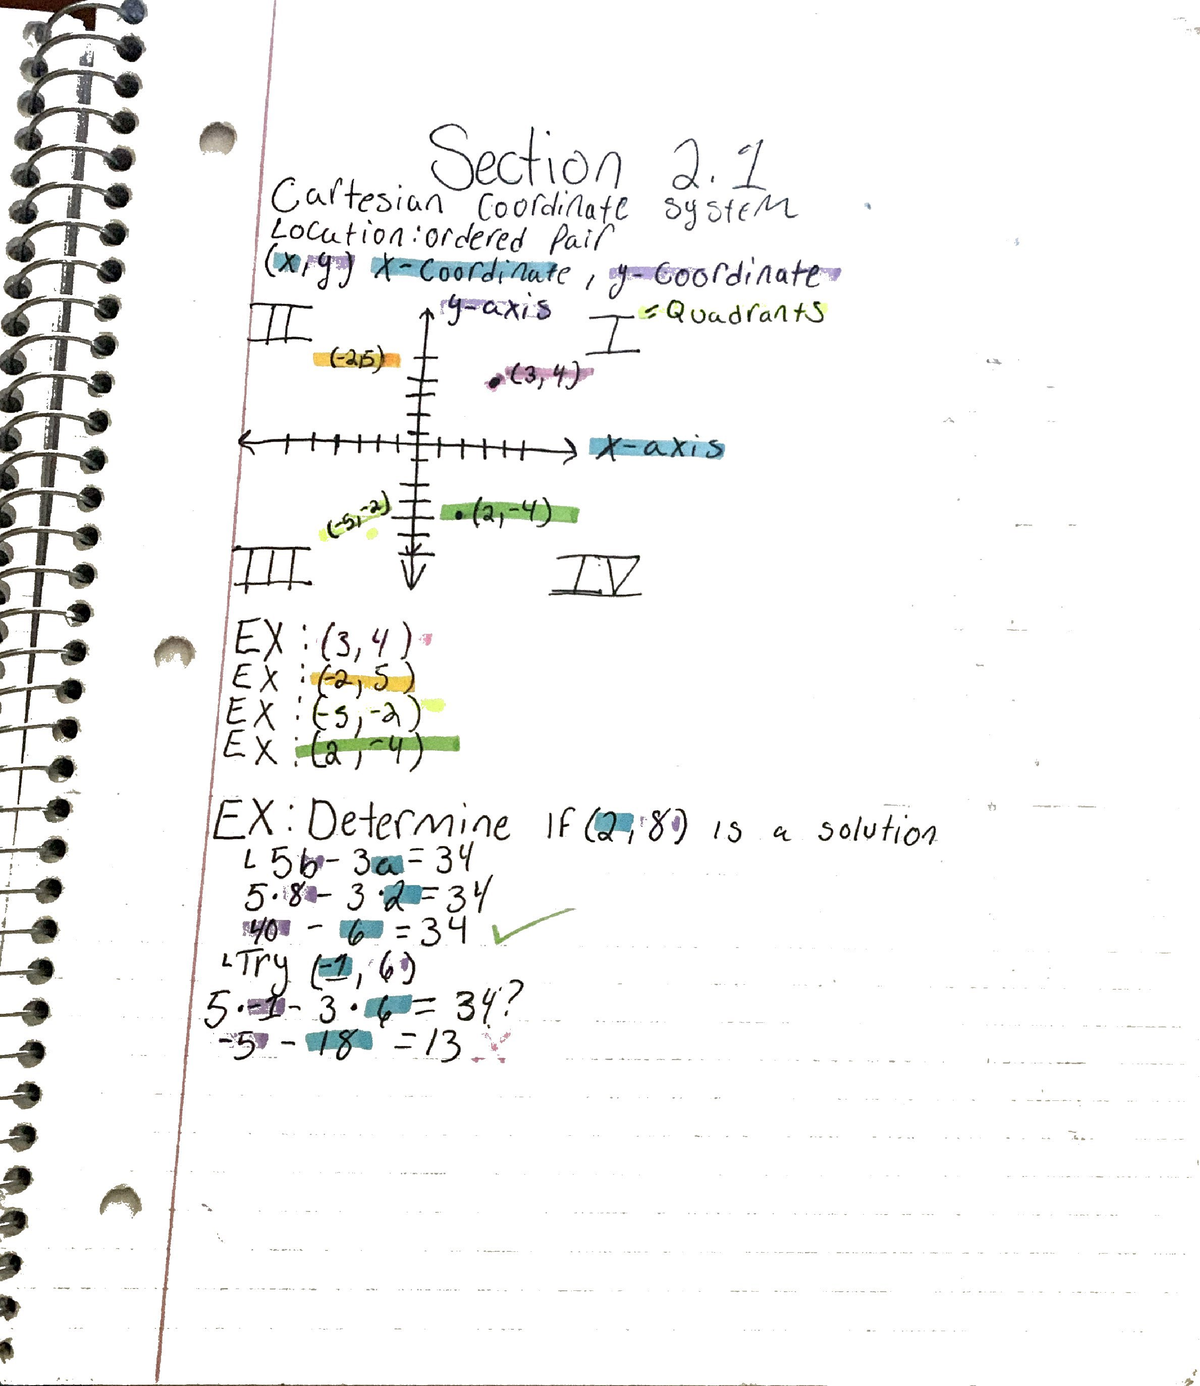 Section 2.1
Cartesian Coordinate system
Location: ordered Pair
(x,y) x-Coordinate, y-Coordinate
II
y-axis
I
= Quadrants
(-2,5)
(3,4)
x-axis
(-5,-2)
(2,-4)
III
IV
EX: (3,4)
EX: (-2,5)
EX: (-5,-2)
EX: (2,-4)
EX: Determine if (2,8) is a solution
5b - 3a = 34
5·8 - 3·2 = 34
40 - 6 = 34 ✓
Try (-1,6)
5·-1 - 3·6 = 34?
-5 - 18 = 13 X